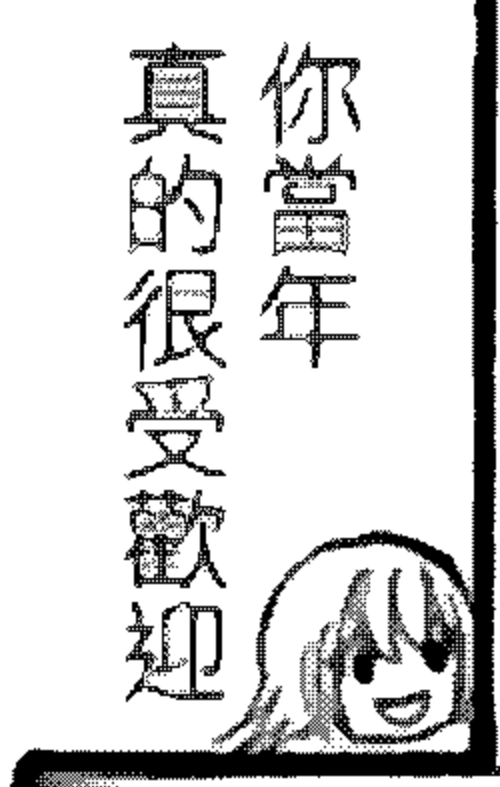 你當年
真的很受歡迎